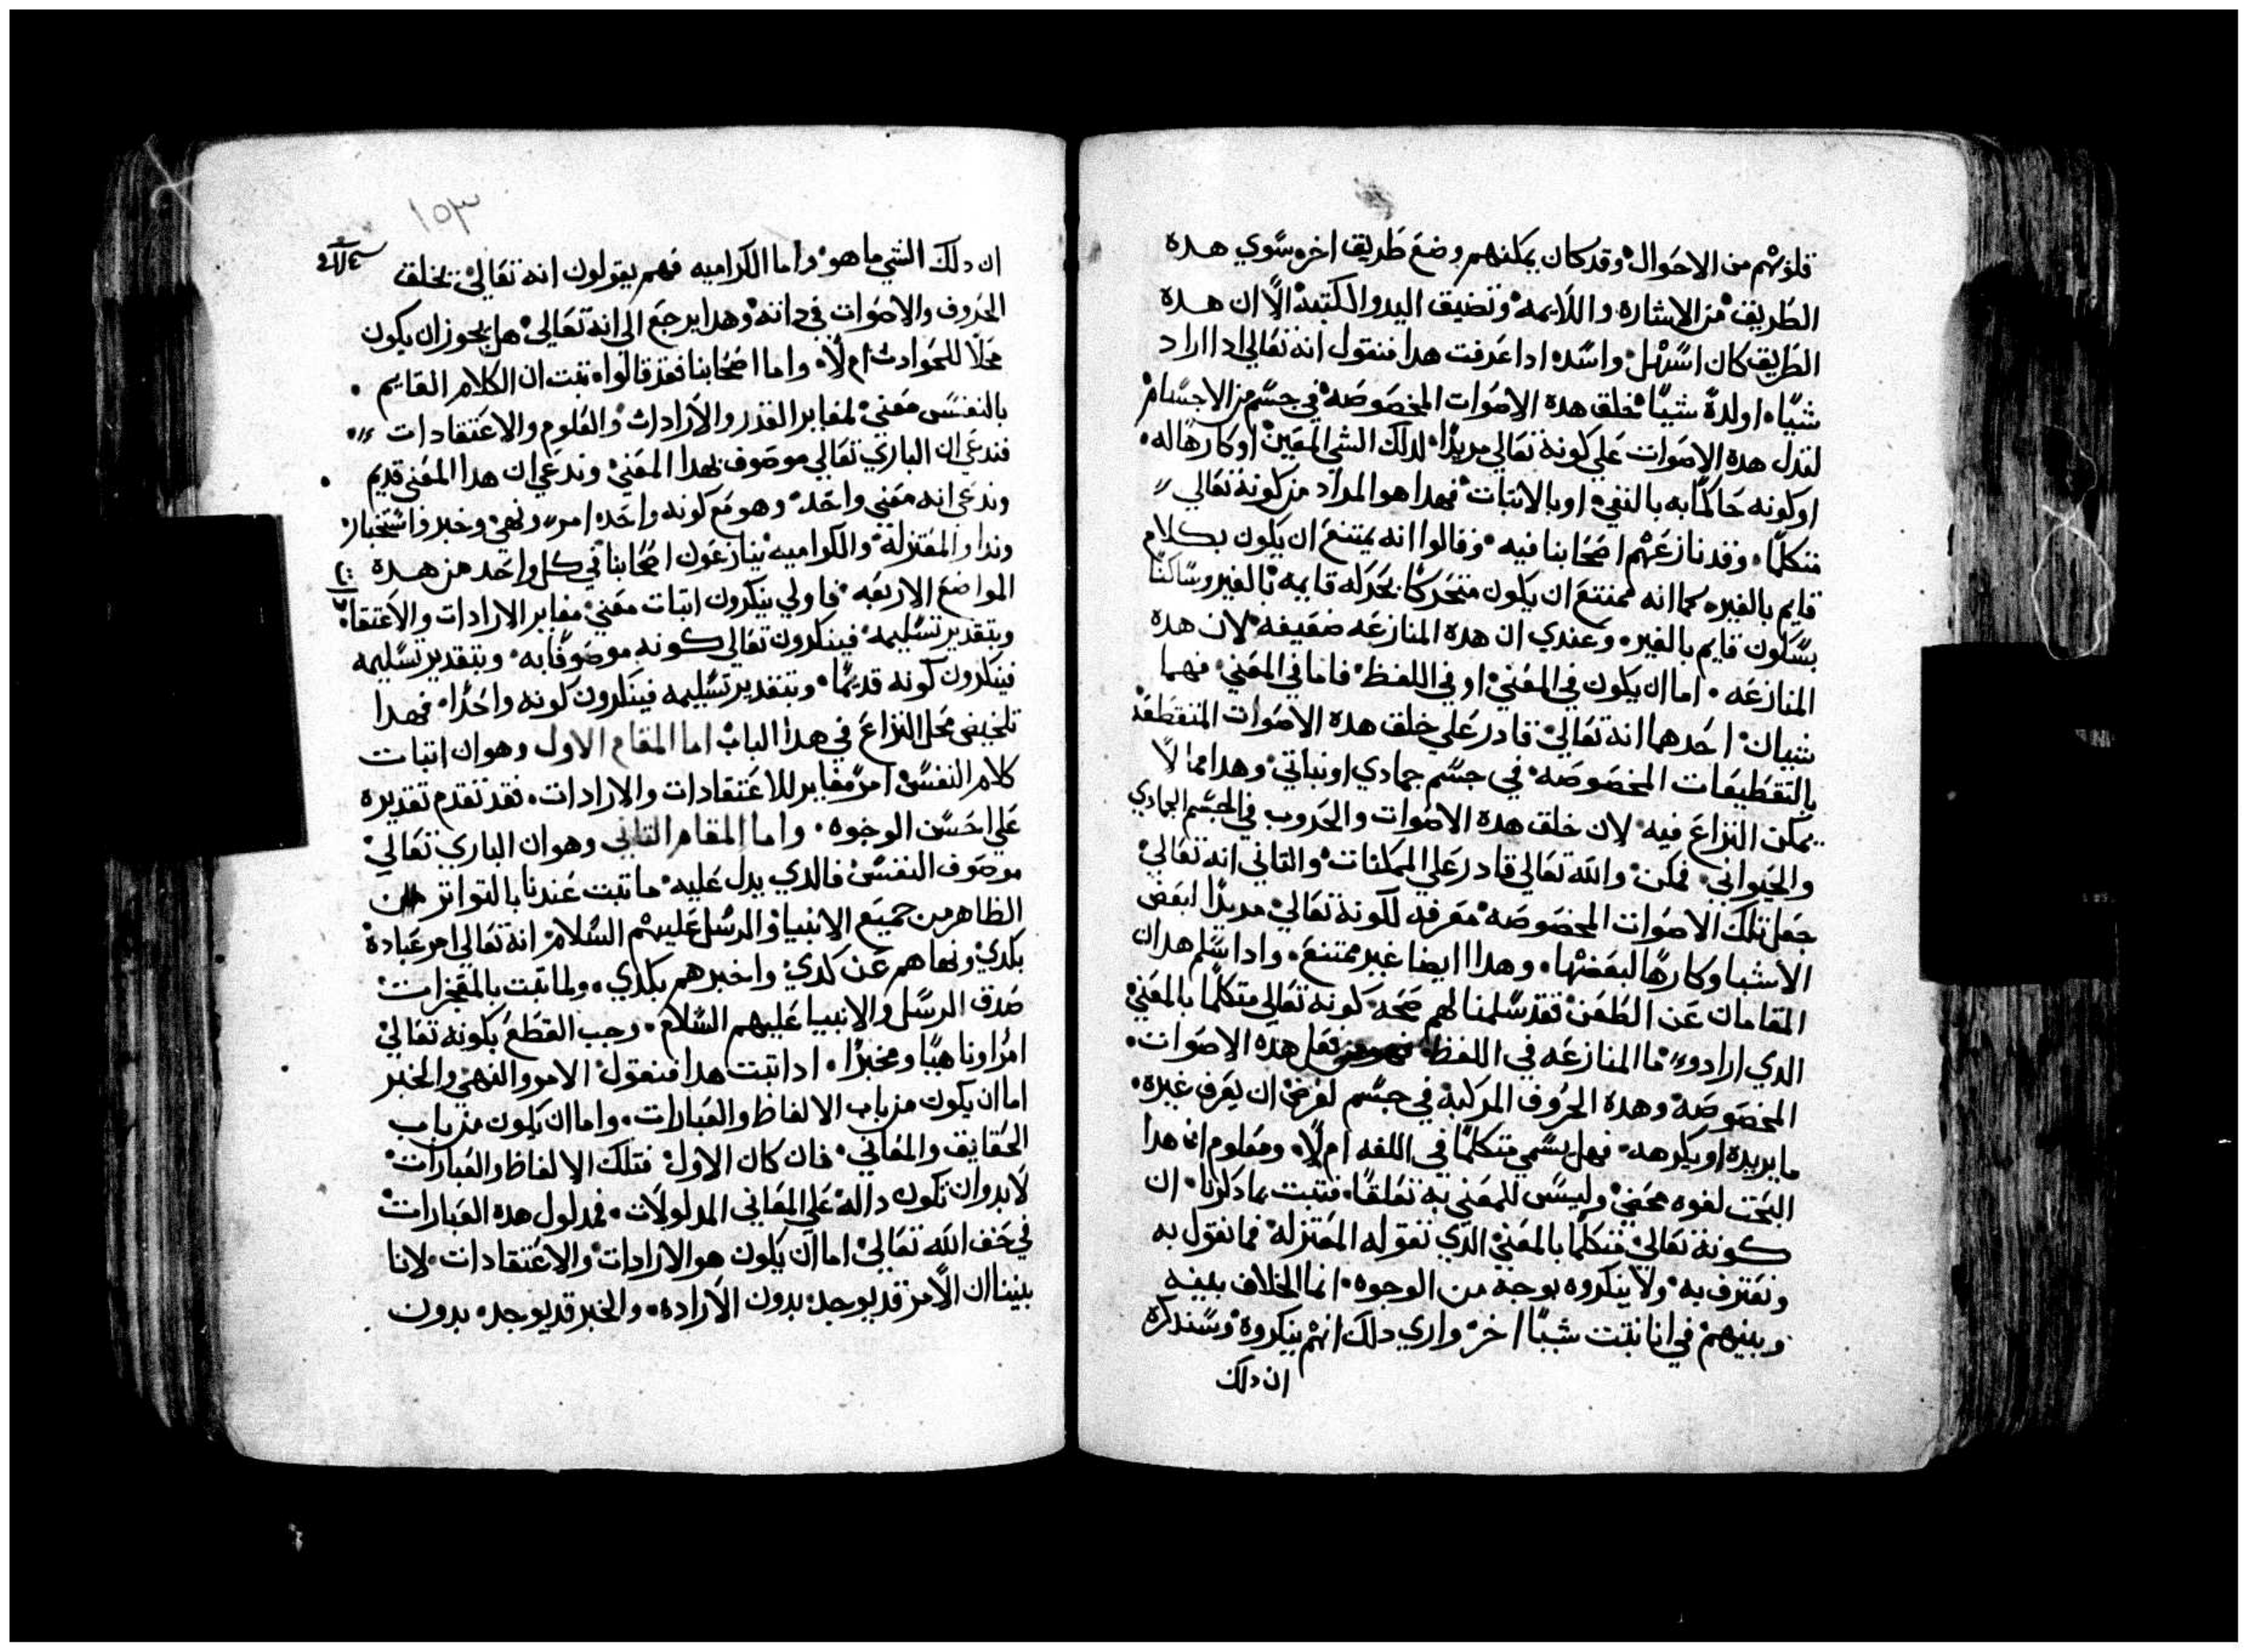 قلوبهم من الاحوال وقد كان يمكنهم وضع طريق اخر سوي هده
الطريق من الاشاره والايمه وتضيق اليد والكتبة الا ان هده
الطريق كان اسهل واشده ادا عرفت هدا فنقول انه تعالي ادا اراد
شيًا او لدة شيًا خلق هده الاصوات المخصوصه في جسم من الاجسام
لتدل هده الاصوات علي كونه تعالي مريدًا لدلك الشي المعين او كارهًا له
او كونه حاكمًا به بالنفي او بالاتبات فهدا هو المراد من كونه تعالي
متكلمًا وقد نازعهم اصحابنا فيه وقالوا انه يمتنع ان يكون بكلام
قايم بالغيره كما انه يمتنع ان يكون متحركًا بحركه قايمه بالغير وساكنًا
بسكون قايم بالغير وعندي ان هده المنازعه ضعيفه لان هده
المنازعه اما ان يكون في المعني او في اللفظ فاما في المعني فهما
شيان احدهما انه تعالي قادر علي خلق هده الاصوات المتقطعه
بالتقطيعات المخصوصه في جسم جمادي او نباتي وهدا مما لا
يمكن النزاع فيه لان خلق هده الاصوات والحروب في الجسم الجمادي
والحيواني ممكن والله تعالي قادر علي الممكنات والتاني انه تعالي
جعل تلك الاصوات المخصوصه معرفه لكونه تعالي مريدًا لبعض
الاشيا وكارهًا لبعضها وهدا ايضا غير ممتنع وادا سلم هدان
المقامان عن الطعن فقد سلمنا لهم صحه كونه تعالي متكلمًا بالمعني
الدي ارادو ما المنازعه في اللفظ هده الاصوات
المخصوصه وهده الحروف المركبه في جسم لغرض ان يعرف غيره
ما يريده او يكرهه فهل يسمي متكلمًا في اللغه ام لا ومعلوم ان هدا
البحت لغوه محض وليس للمعني به تعلقًا فتبت بما دكرنا ان
كونه تعالي متكلمًا بالمعني الدي تقوله المعتزله فما نقول به
ونعترف به ولا ينكروه بوجه من الوجوه انما الخلاف بيننه
وبينهم في انا نتبت شيًا اخر واري دلك انهم ينكروه وسندكره
ان دلك
١٥٣
ان دلك الشي ما هو واما الكراميه فهم يقولون انه تعالي يخلق
الحروف والاصوات في داته وهدا يرجع الي انه تعالي هل يجوز ان يكون
محلًا للحوادت ام لا واما اصحابنا فقد قالوا تبت ان الكلام القايم
بالنفس معني لمغاير القدر والارادات والعلوم والاعتقادات
فندعي ان الباري تعالي موصوف بهدا المعني وندعي ان هدا المعني قديم
وندعي انه معني واحد وهو مع كونه واحد امر ونهي وخبر واستخبار
وندا والمعتزله والكراميه ينازعون اصحابنا في كل واحد من هده
المواضع الاربعه فاولي ينكرون اتبات معني مغاير الارادات والاعتقا
وبتقدير تسليمه فينكرون تعالي كونه موصوفًا به وبتقدير تسليمه
فينكرون كونه قديمًا وبتقدير تسليمه فينكرون كونه واحدًا فهدا
تلخيص محل النزاع في هدا الباب اما المقام الاول وهو ان اتبات
كلام النفس امر مغاير للاعتقادات والارادات فقد تقدم تقديره
علي احسن الوجوه واما المقام التاني وهو ان الباري تعالي
موصوف النفس فالدي يدل عليه ما تبت عندنا بالتواتر من
الظاهر من جميع الانبيا والرسل عليهم السلام انه تعالي امر عباده
بكدي ونهاهم عن كدي واخبرهم بكدي ولما تبت بالمعجزات
صدق الرسل والانبيا عليهم السلام وجب القطع بكونه تعالي
امرًا وناهيًا ومخبرًا ادا تبت هدا فنقول الامر والنهي والخبر
اما ان يكون من باب الالفاظ والعبارات واما ان يكون من باب
الحقايق والمعاني فان كان الاول فتلك الالفاظ والعبارات
لابد وان تكون داله علي المعاني المدلولات فمدلول هده العبارات
في حق الله تعالي اما ان يكون هو الارادات والاعتقادات لانا
بينا ان الامر قد يوجد بدون الاراده والخبر قد يوجد بدون